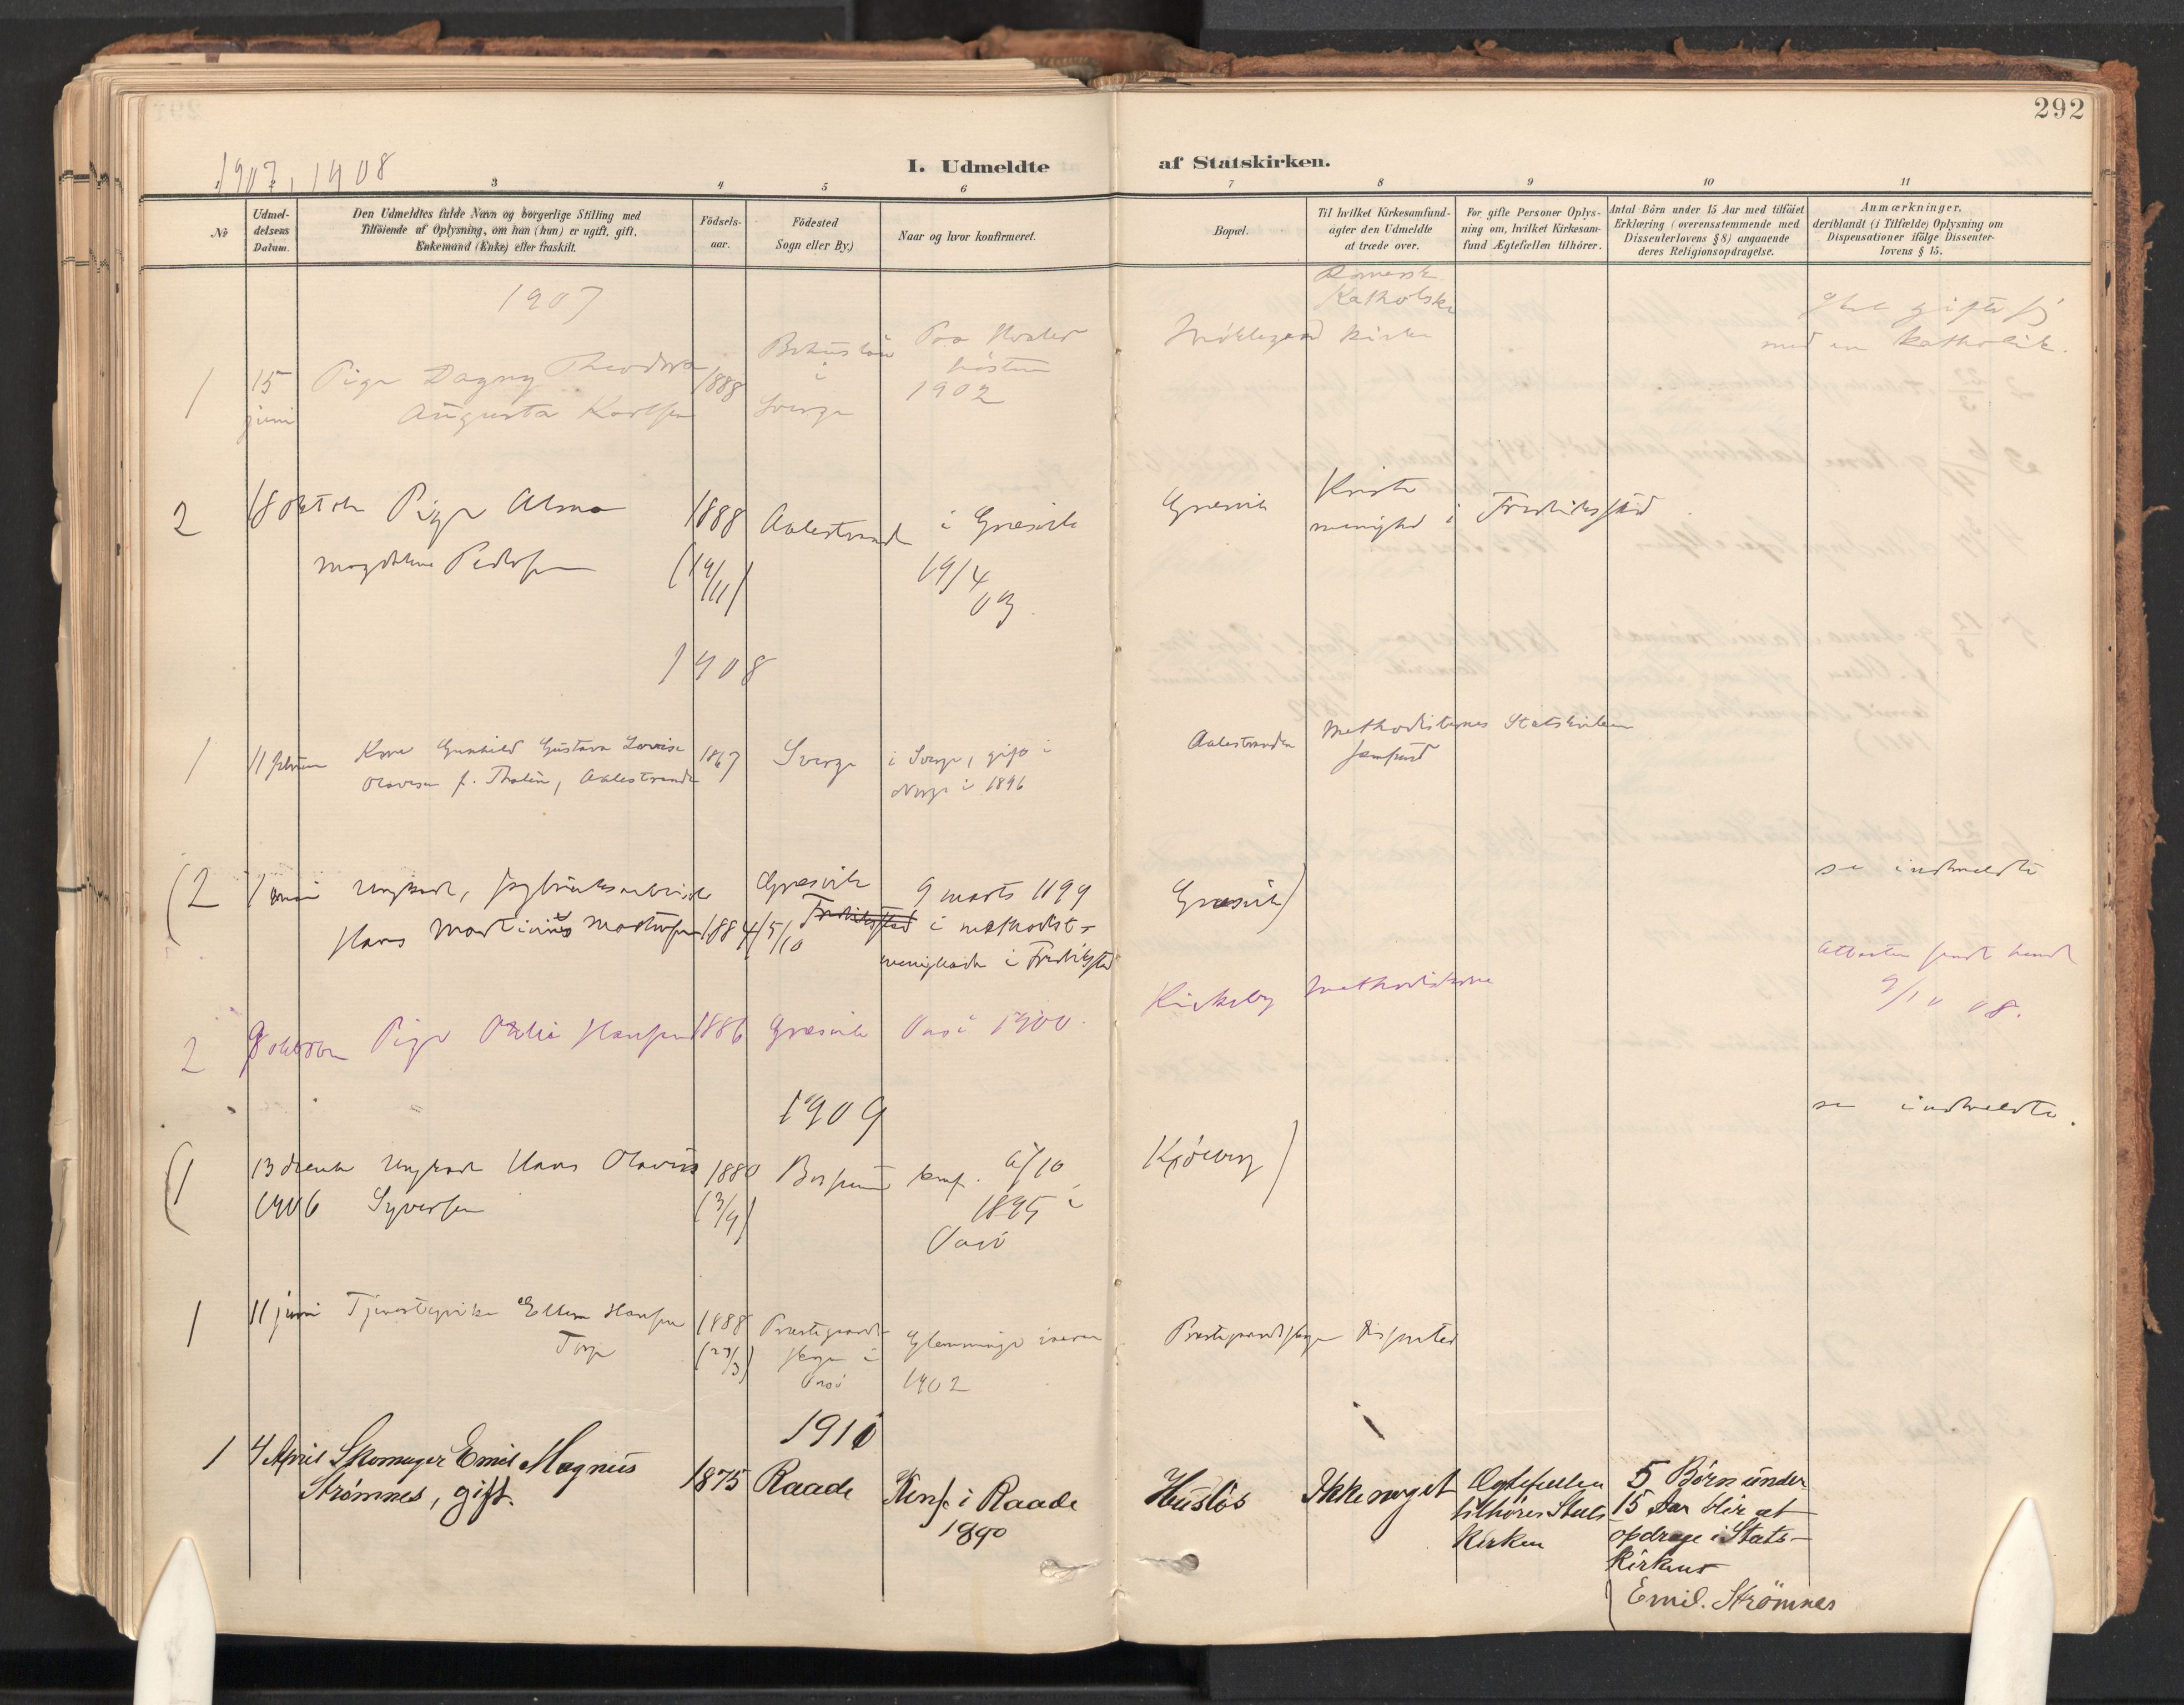 292
1907, 1908
I. Udmeldte af Statskirken.
1 2 3 4 5 6 7 8 9 10 11
No
Udmel-
delsens
Datum.
Den Udmeldtes fulde Navn og borgerlige Stilling med
Tilføiende af Oplysning, om han (hun) er ugift, gift,
Enkemand (Enke) eller fraskilt.
Fødsels-
aar.
Fødested
Sogn eller By.)
Naar og hvor konfirmeret.
Bopæl.
Til hvilket Kirkesamfund-
agter den Udmeldte
at træde over.
For gifte Personer Oplys-
ning om, hvilket Kirkesam-
fund Ægtefællen tilhører.
Antal Børn under 15 Aar med tilføiet
Erklæring (overensstemmende med
Dissenterlovens § 8) angaaende
deres Religionsopdragelse.
Anmærkninger,
deriblandt (i Tilfælde) Oplysning om
Dispensationer ifølge Dissenter-
lovens § 15.
1907
1
15
juni
Pige Dagny Theodora
Augusta Karlsen
1888
Bohuslän
i
Sverge
Paa Hvaler
høsten
1902
Romersk
Katholske
Kirke
Skal gifte sig
med en Katholik.
2
18 oktobr
Pige Alma
Magdalene Pedersen
1888
(14/11)
Aalestrand
i Græsvik
19/4
03.
Græsvik
Kristi
menighed i Fredriksstad
1908
1
11 februar
Kone Gunhild Gustava Lovise
Olavesen f. Thalin, Aalestranda
1867
Sverge
i Sverge, gift i
Norge i 1896
Aalestranden
Methodisternes
samfund
Statskirken
(2
1 mai
Ungkarl,
Hans Martinius Martinsen
1884 15/10
Græsvik
Fredriksstad
9 marts 1899
i methodist-
menigheden i Fredriksstad
Græsvik)
se indmeldte
2
9 oktober
Pige Hansen
1886
Græsvik
Onsø 1900.
Kirkeby
Methodisterne
Attesten sendt hende
9/10 08.
1909
(1
13 decembr
1906
Ungkarl Hans Olavus
Syversen
1880
(3/9)
konf. 6/10
1895 i
Onsø
Kjølberg)
se indmeldte.
1
11 juni
Tjenestepike Ellen Hansen
Torp
1888
(23/3)
Prestegaards-
skogen i
Onsø
Glemminge
1902
Prestegaardsskogen
1910
1
4 April
Skomager Emil Magnus
Strømnes, gift.
1875
Raade
Konf. i Raade
1890
Husløs
Ikke noget
Ægtefællen
tilhører Stats
Kirken
5 Børn under
15 Aar blir at
opdrage i Stats-
Kirkens
Emil. Strømnes